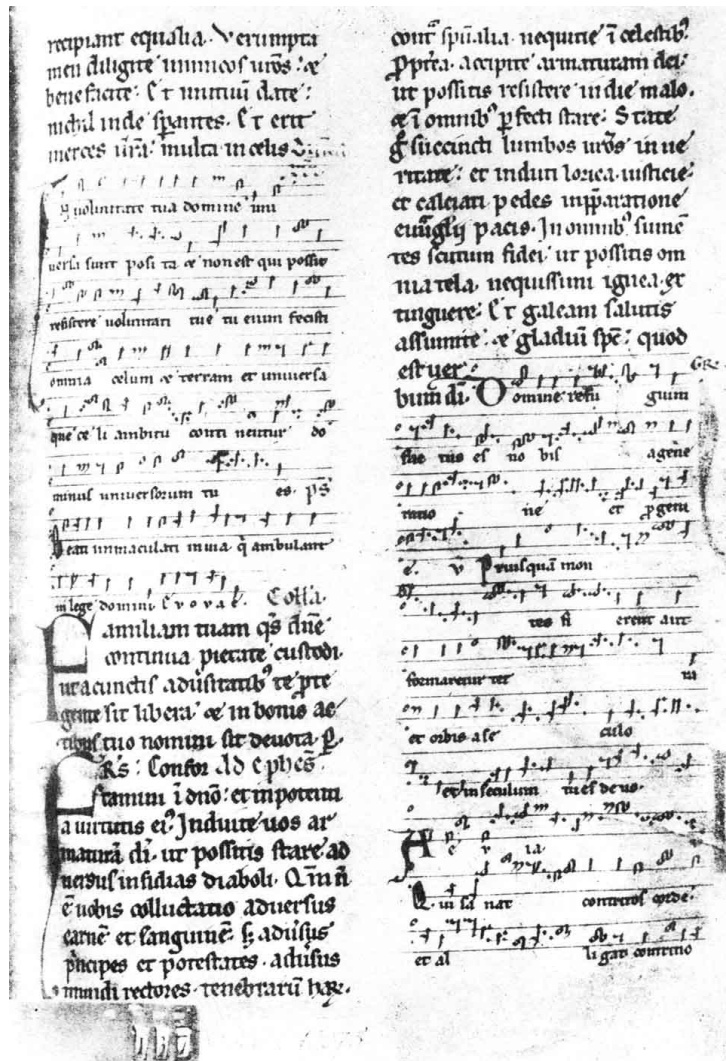 recipiant equalia. Verumpta
men diligite inimicos ur̄os: ⁊
benefacite. Et mutuū date:
nichil inde sperantes. Et erit
merces ur̄a multa in celis
voluntate tua domine uni
versa sunt posi ta ⁊ non est qui possit
resistere voluntati tue tu enim fecisti
omnia celum ⁊ terram et universa
que ce li ambitu conti nentur do
minus universorum tu es. p̄s
Beati inmaculati in via q̄ ambulant
in lege domini. E v o v a e. Coll̄a.
Familiam tuam q̄s dn̄e
continua pietate custodi.
ut a cunctis aduersitatibꝰ te prote
gente sit libera ⁊ in bonis ac
tibus tuo nomini sit deuota. P.
Confor Ad ephes̄
tamini ī dn̄o: et in potenti
a uirtutis eiꝰ. Induite uos ar
maturā di. ut possitis stare ad
uersus insidias diaboli. Qm̄ n̄
ē uobis colluctatio aduersus
carnē et sanguinē. sꝫ aduersus
principes et potestates. aduersus
mundi rectores tenebrarū haꝝ.
contra spūalia nequitie ī celestibꝰ.
Propterea accipite armaturam dei.
ut possitis resistere in die malo.
⁊ ī omnibꝰ perfecti stare. State
g̊ succincti lumbos uros in ue
ritate: et induti lorica iusticie:
et calciati pedes in preparatione
euāglii pacis. In omnibꝰ sumē
tes scutum fidei ut possitis om
nia tela nequissimi ignea ex
tinguere. Et galeam salutis
assumite ⁊ gladiū spc̄: quod
est uer
bum di. Domine refu gium GR.
factus es no bis a gene
ratio ne et progeni
e. v̄ Priusquā mon
tes fi erent aut
formaretur ter ra
et orbis a se culo
et in seculum tu es deus.
A e v ia
Qui sa nat contritos corde.
et al ligat contritio